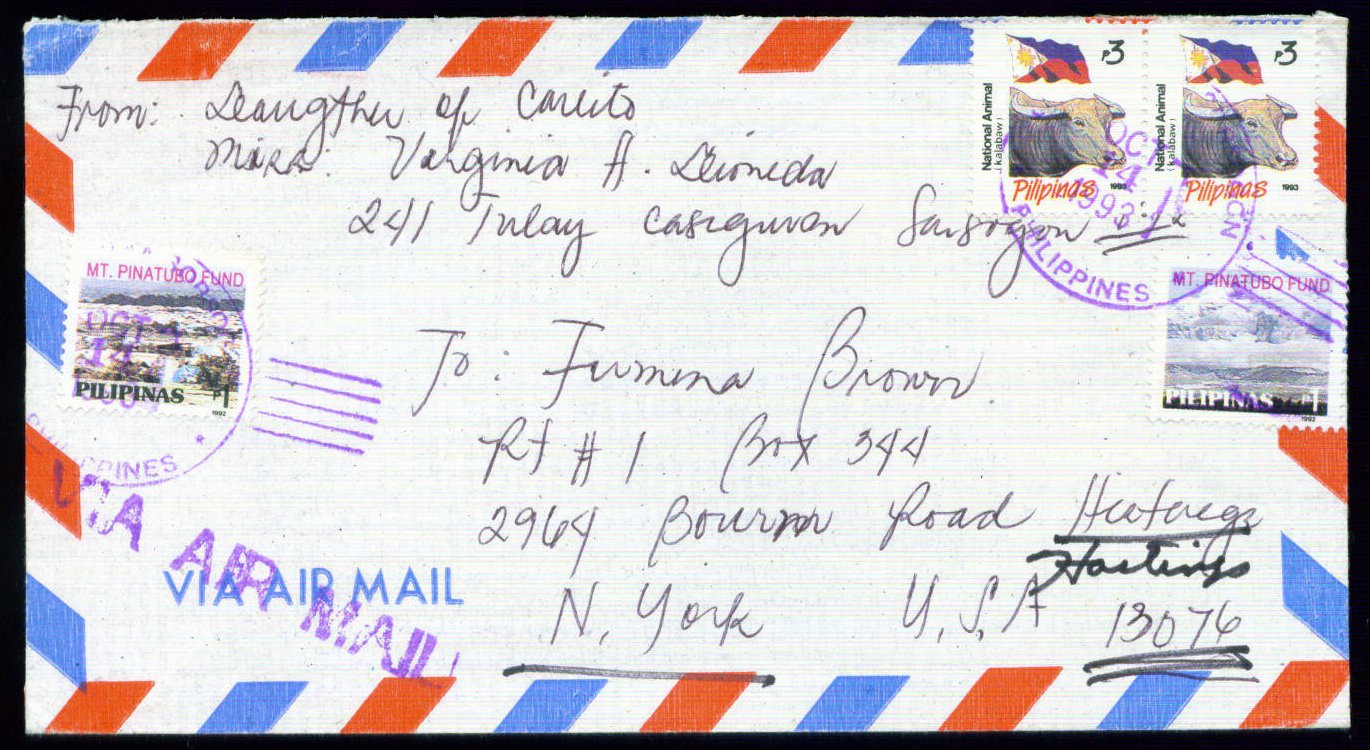 From: Daugther of Carlito
Miss: Virginia A. Dioneda
241 Tulay Casiguran Sorsogon
₱3
National Animal
(kalabaw)
Pilipinas
1993
₱3
National Animal
(kalabaw)
Pilipinas
1993
OCT
14
1993
PHILIPPINES
MT. PINATUBO FUND
PILIPINAS
₱1
1992
OCT
14
PPINES
MT. PINATUBO FUND
PILIPINAS ₱1
1992
To: Brown
Rt # 1 Box 344
2964 Road
Hastings
N. York U.S.A 13076
VIA AIR MAIL
VIA AIR MAIL